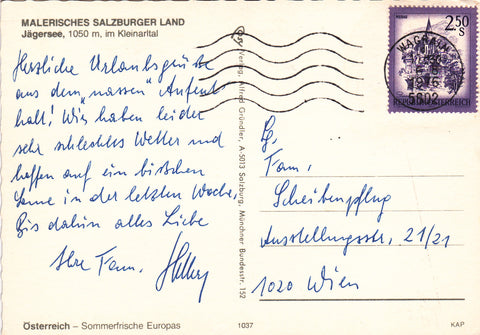 MALERISCHES SALZBURGER LAND
Jägersee, 1050 m, im Kleinarltal
Herzliche Urlaubsgrüße
aus dem "nassen" Aufent-
halt! Wir haben leider
sehr schlechtes Wetter und
hoffen auf ein bißchen
Sonne in der letzten Woche,
Bis dahin alles Liebe
Ihre Fam.
Verlag Alfred Gründler, A-5013 Salzburg, Münchner Bundesstr. 152
2.50
S
REPUBLIK ÖSTERREICH
WAGRAIN
5602
Fam.
Scheibenpflug
Ausstellungsstr. 21/21
1020 Wien
Österreich – Sommerfrische Europas
1037
KAP